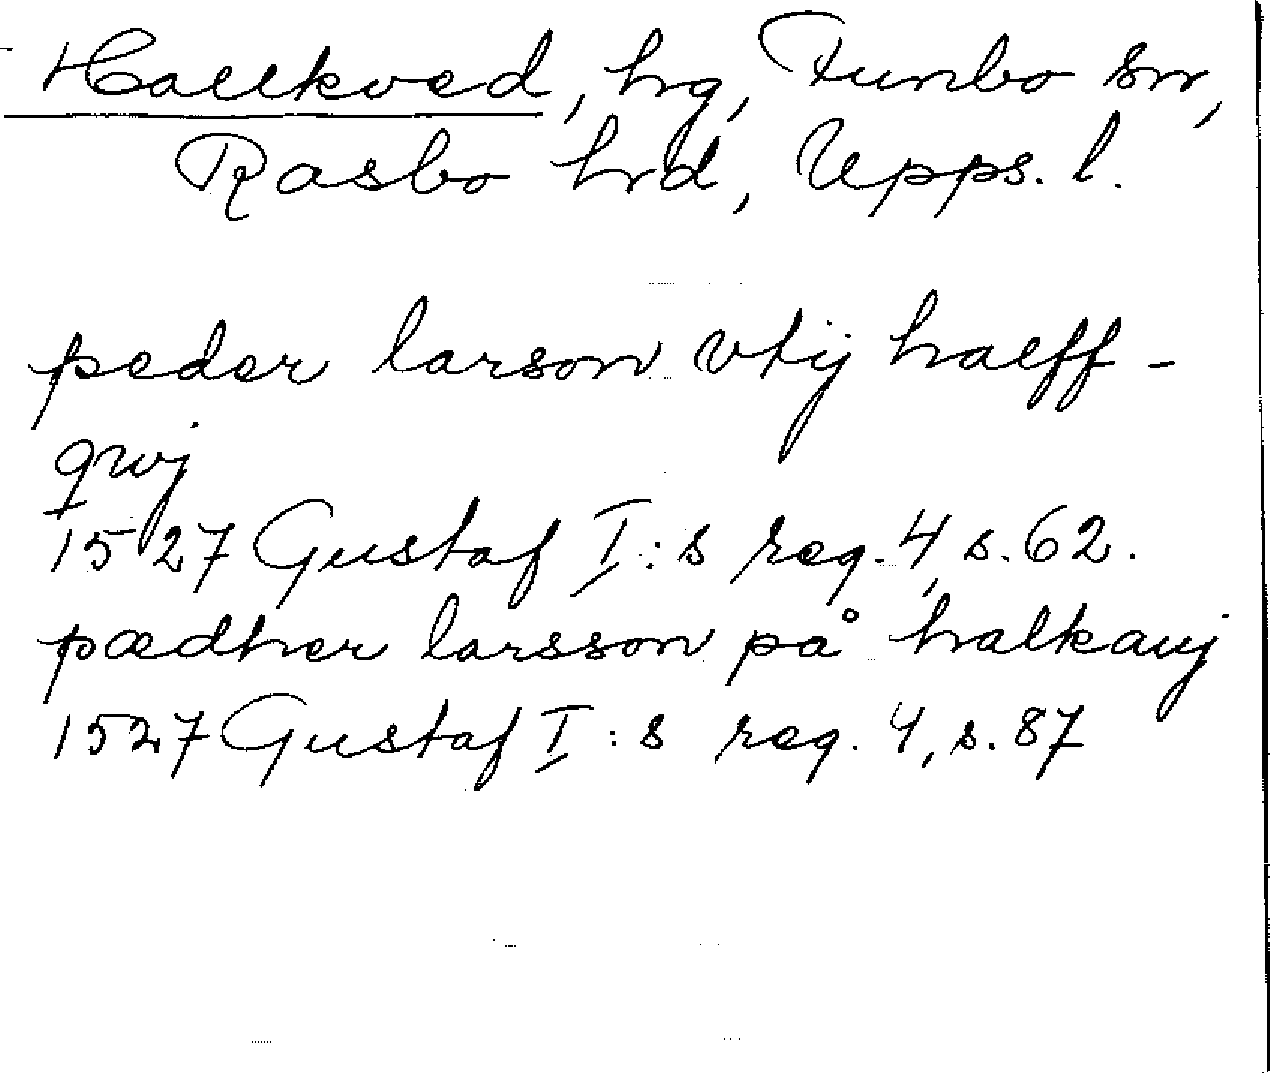 Hallkved, hg, Funbo sn,
Rasbo hrd, Upps. l.
peder larson vtij halff-
qwj
1527 Gustaf I:s reg. 4, s. 62.
pædher larsson på halkauj
1527 Gustaf I:s reg. 4, s. 87